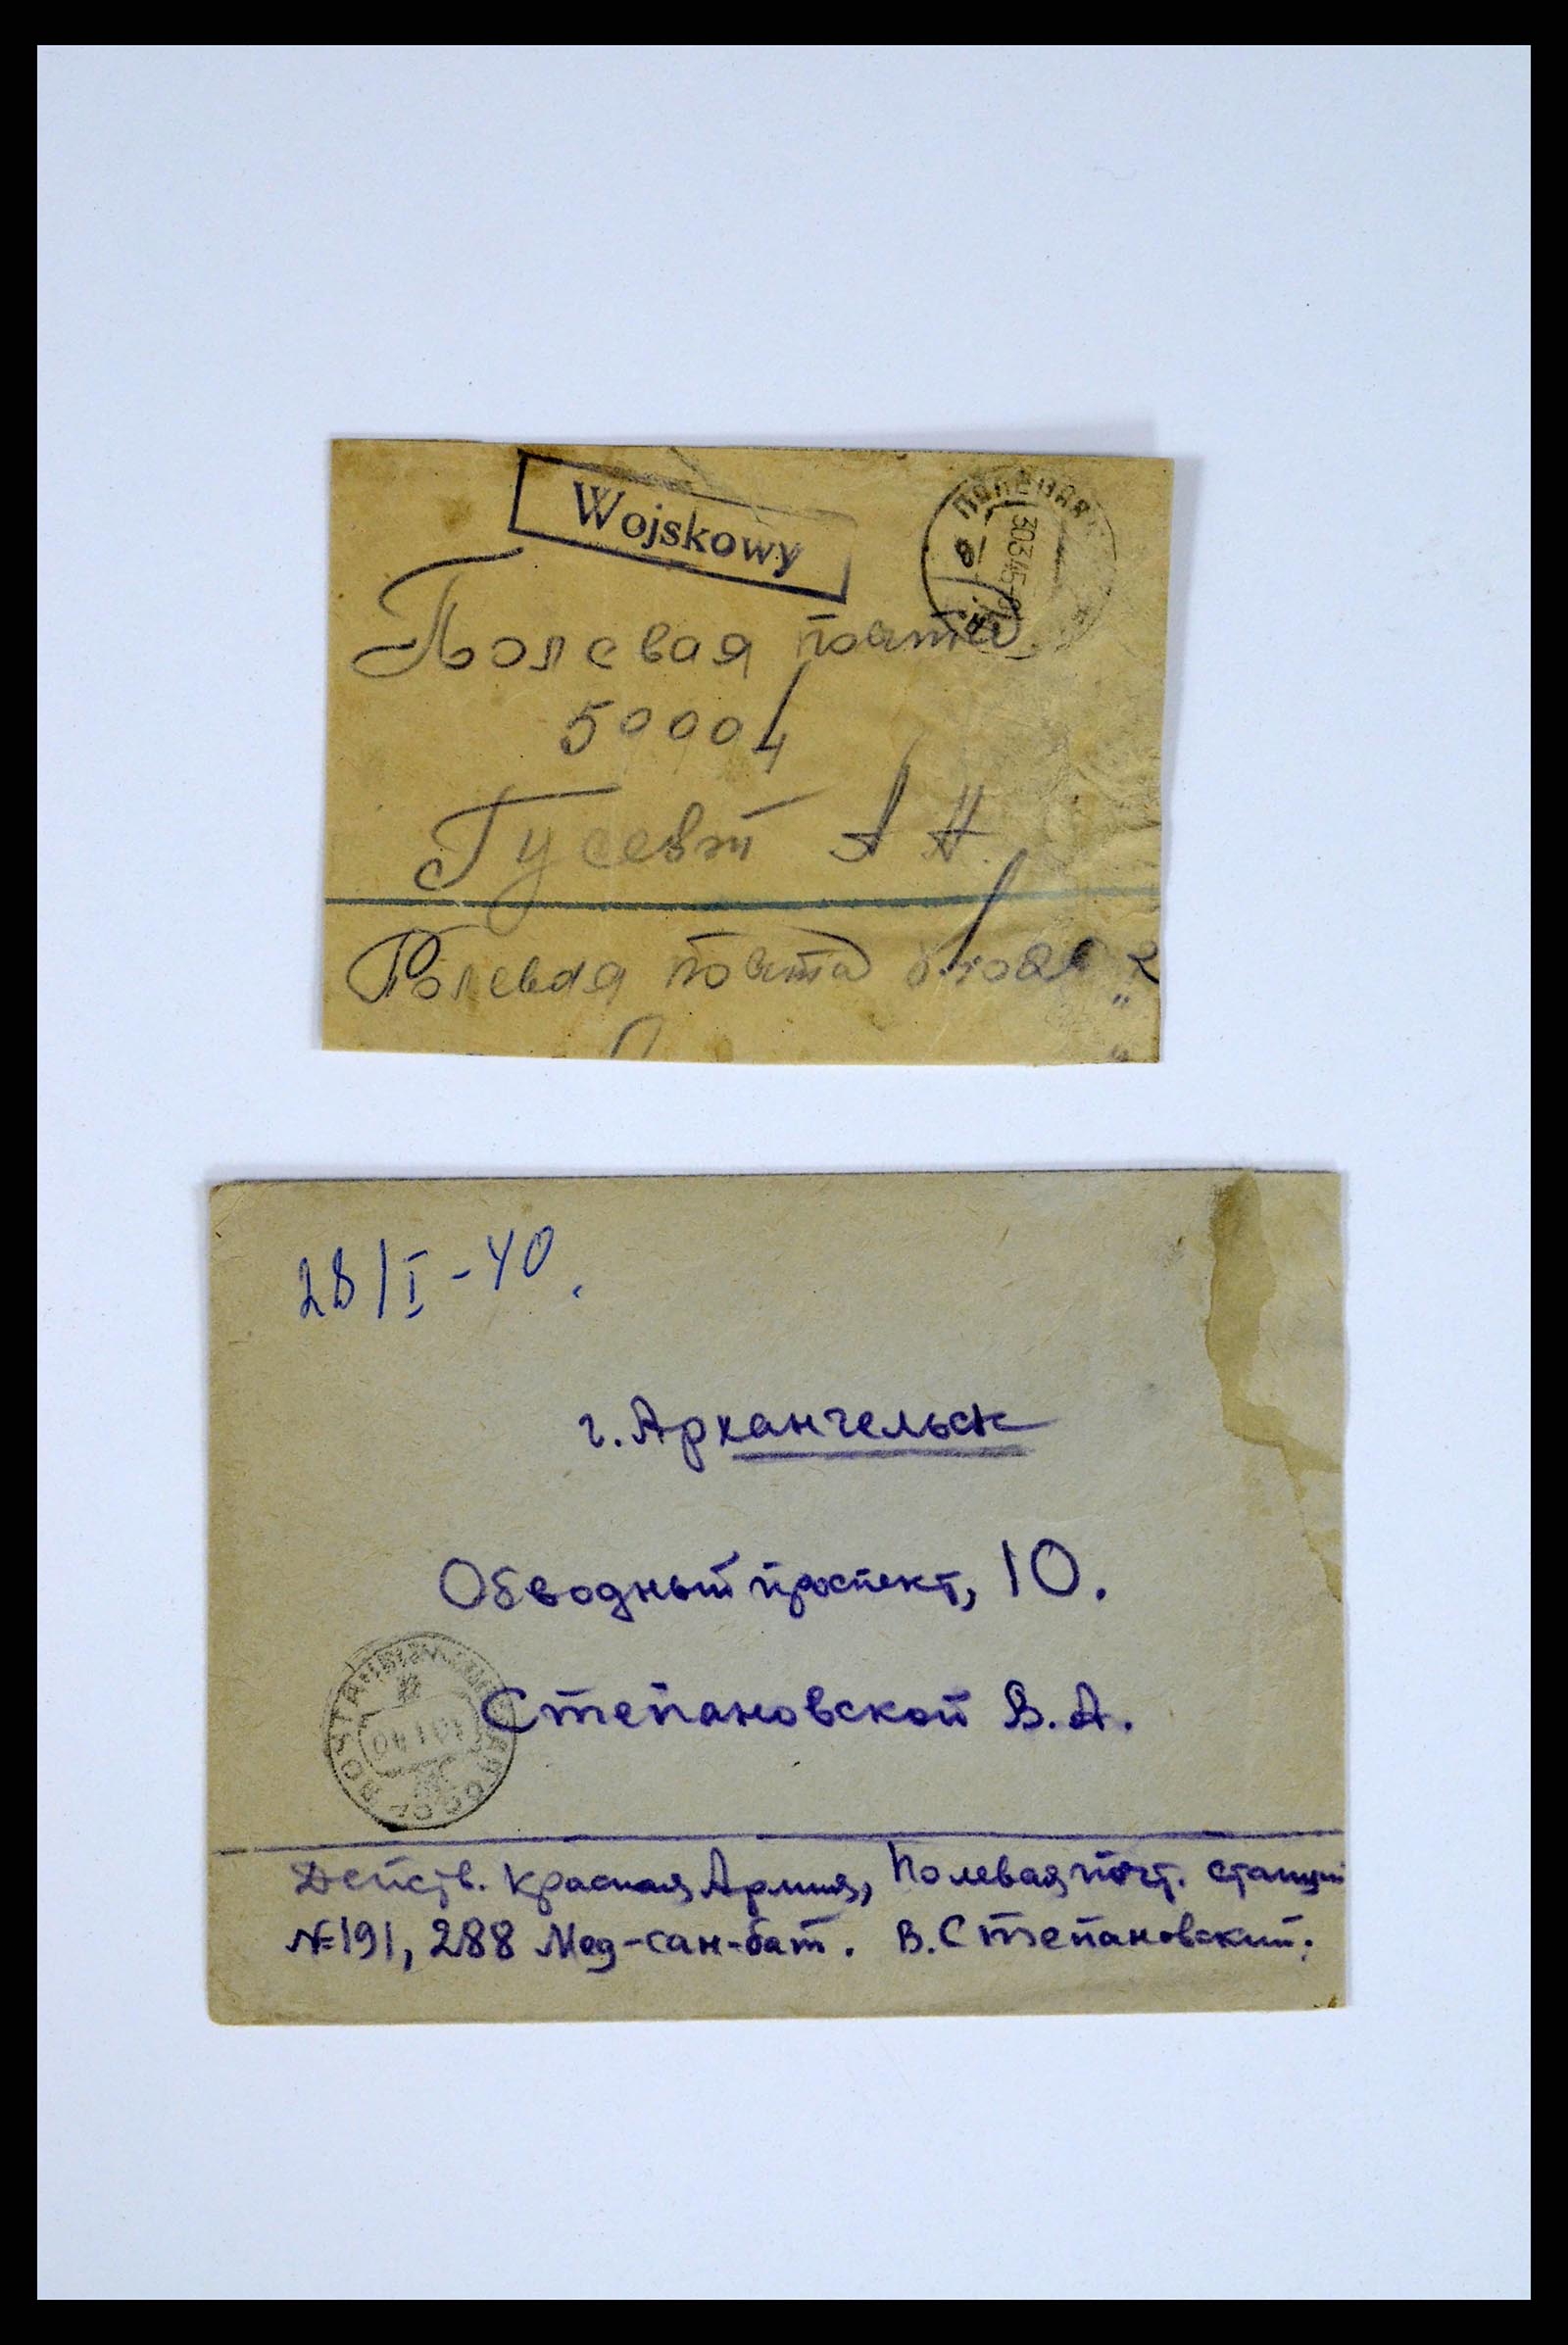 Wojskowy
ПОЛЕВАЯ
30.3.45
Полевая почта
59904
Гусевт А Н
Полевая почта
28/I-40.
г. Архангельск
Обводный проспект, 10.
Степановской В. А.
Действ. Красная Армия, Полевая почт. станция
№191, 288 Мед-сан-бат. В. Степановский.